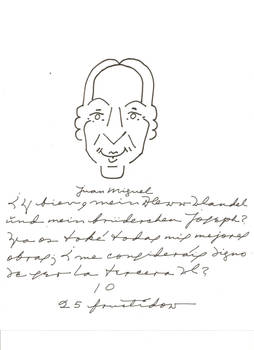 Juan Miguel
¿Y bien, mein Herr Handel
und mein brüderchen Joseph?
Ya os toké todas mis mejores
obras; ¿me consideráis digno
de ser la tercera H?
10
25 fructidor